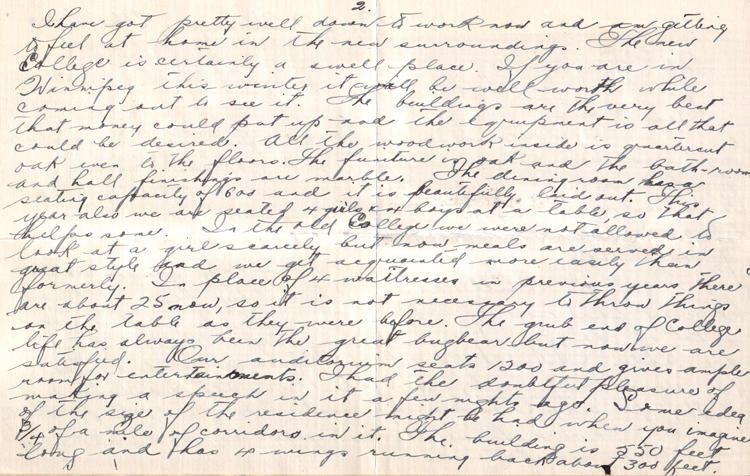 2.
I have got pretty well down to work now and am getting
to feel at home in the new surroundings. The new
College is certainly a swell place. If you are in
Winnipeg this winter it will be well worth while
coming out to see it. The buildings are the very best
that money could put up and the equipment is all that
could be desired. All the woodwork inside is quartercut
oak even to the floors. The funiture is oak and the bath-room
and hall finishings are marble. The dining room has a
seating capacity of 600 and it is beautifully laid out. This
year also we are seated 4 girls & boys at a table, so that
helps some. In the old College we were not allowed to
look at a girl scarcely but now meals are served in
great style and we get acquainted more easily than
formerly. In place of 4 waitresses in previous years there
are about 25 now, so it is not necessary to throw things
on the table as they were before. The grub end of College
life has always been the great bugbear but now we are
satisfied. Our auditorium seats 1200 and gives ample
room for entertainments. I had the doubtful pleasure of
making a speech in it a few nights ago. Some idea
of the size of the residence might be had when you imagine
3/4 of a mile of corridors in it. The building is 350 feet
long and has 4 wings running back about 300 feet.